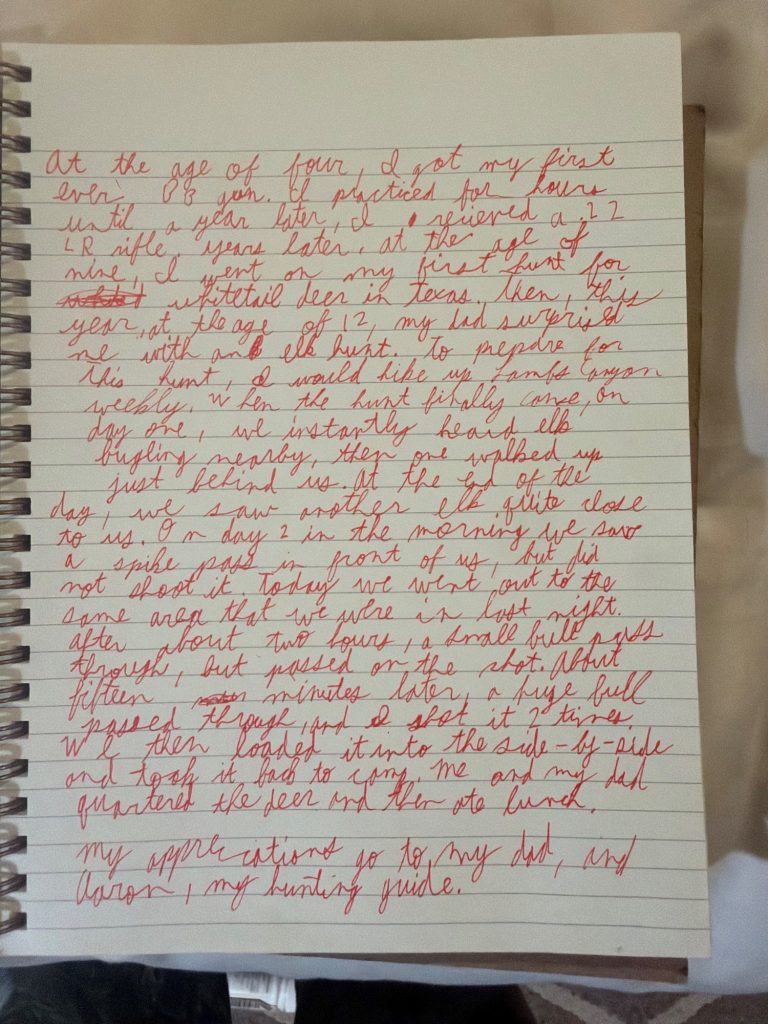 At the age of four, I got my first
ever BB gun. I practiced for hours
until a year later, I recieved a .22
LR rifle. years later, at the age of
nine, I went on my first hunt for
whitetail deer in Texas. Then, this
year, at the age of 12, my dad surprised
me with an elk hunt. To prepare for
this hunt, I would hike up Lambs Canyon
weekly. When the hunt finally came, on
day one, we instantly heard elk
bugling nearby, then one walked up
just behind us. At the end of the
day, we saw another elk quite close
to us. On day 2 in the morning we saw
a spike pass in front of us, but did
not shoot it. Today we went out to the
same area that we were in last night.
After about two hours, a small bull pass
through, but passed on the shot. About
fifteen minutes later, a huge bull
passed through, and I shot it 2 times.
We then loaded it into the side-by-side
and took it back to camp. Me and my dad
quartered the deer and then ate lunch.
My appreciations go to my dad, and
Aaron, my hunting guide.